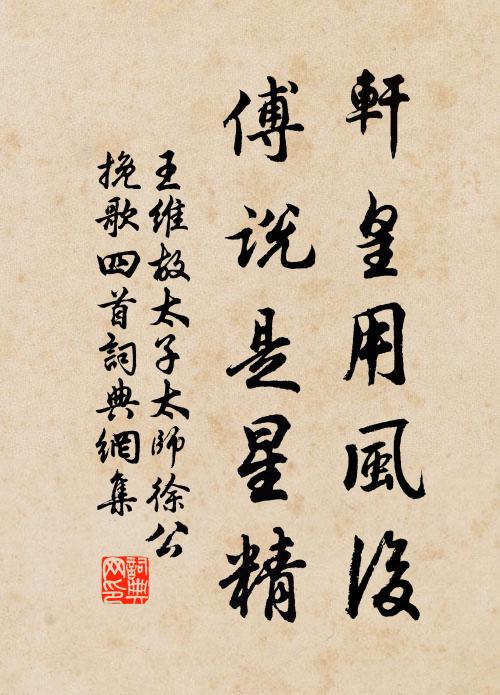 軒皇用風後
傅説是星精
王維故太子太師徐公
挽歌四首詞典網集
詞典网印